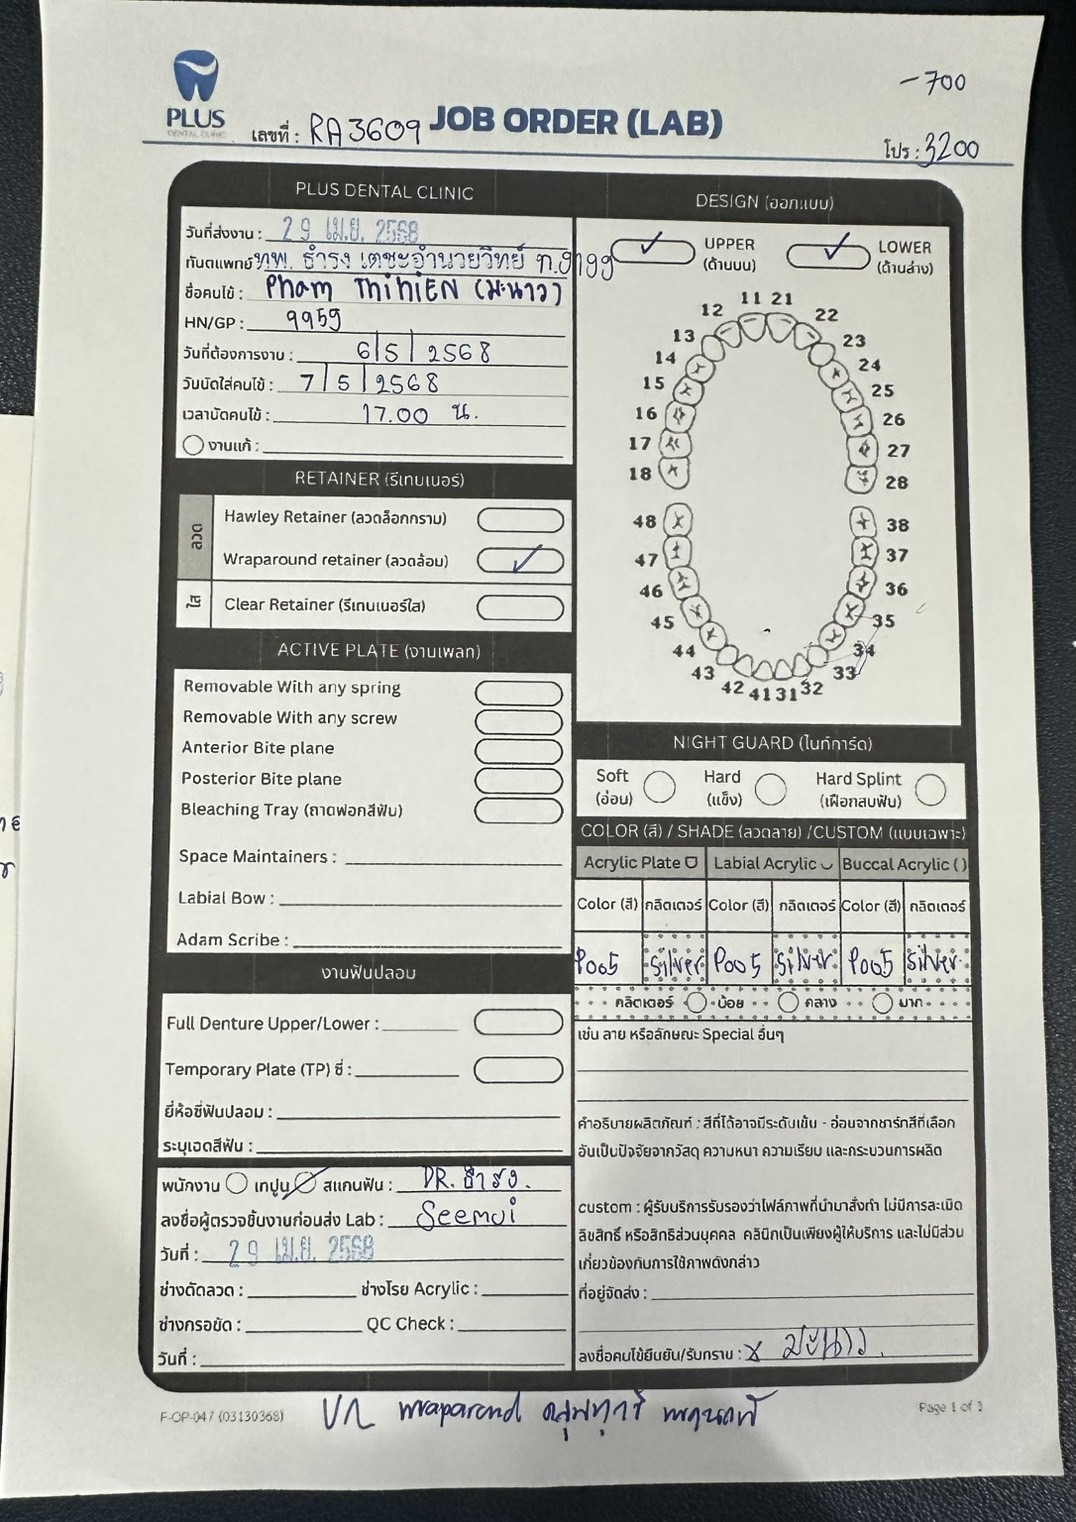 -700
PLUS
DENTAL CLINIC
เลขที่ : RA3609
JOB ORDER (LAB)
โปร : 3200
PLUS DENTAL CLINIC
วันที่ส่งงาน : 29 เม.ย. 2568
ทันตแพทย์ ทพ. ธำรง เตชะอำนวยวิทย์ ท.9199
ชื่อคนไข้ : Pham ThihiEN (มะนาว)
HN/GP : 9959
วันที่ต้องการงาน : 6/5/2568
วันนัดใส่คนไข้ : 7/5/2568
เวลานัดคนไข้ : 17.00 น.
งานแก้ :
RETAINER (รีเทนเนอร์)
ลวด
Hawley Retainer (ลวดล็อกกราม)
Wraparound retainer (ลวดล้อม) ✓
ใส
Clear Retainer (รีเทนเนอร์ใส)
ACTIVE PLATE (งานเพลท)
Removable With any spring
Removable With any screw
Anterior Bite plane
Posterior Bite plane
Bleaching Tray (ถาดฟอกสีฟัน)
Space Maintainers :
Labial Bow :
Adam Scribe :
งานฟันปลอม
Full Denture Upper/Lower :
Temporary Plate (TP) ซี่ :
ยี่ห้อซี่ฟันปลอม :
ระบุเฉดสีฟัน :
พนักงาน เทปูน สแกนฟัน : DR. ธำรง.
ลงชื่อผู้ตรวจชิ้นงานก่อนส่ง Lab : Seemui
วันที่ : 29 เม.ย. 2568
ช่างดัดลวด : ช่างโรย Acrylic :
ช่างกรอขัด : QC Check :
วันที่ :
DESIGN (ออกแบบ)
✓ UPPER ✓ LOWER
(ด้านบน) (ด้านล่าง)
11 21
12 22
13 23
14 24
15 25
16 26
17 27
18 28
48 38
47 37
46 36
45 35
44 34
43 33
42 41 31 32
NIGHT GUARD (ไนท์การ์ด)
Soft Hard Hard Splint
(อ่อน) (แข็ง) (เฝือกสบฟัน)
COLOR (สี) / SHADE (ลวดลาย) /CUSTOM (แบบเฉพาะ)
Acrylic Plate Labial Acrylic Buccal Acrylic ( )
Color (สี) กลิตเตอร์ Color (สี) กลิตเตอร์ Color (สี) กลิตเตอร์
P005 Silver P005 Silver P005 Silver
กลิตเตอร์ น้อย กลาง มาก
เช่น ลาย หรือลักษณะ Special อื่นๆ
คำอธิบายผลิตภัณฑ์ : สีที่ได้อาจมีระดับเข้ม - อ่อนจากชาร์ทสีที่เลือก
อันเป็นปัจจัยจากวัสดุ ความหนา ความเรียบ และกระบวนการผลิต
custom : ผู้รับบริการรับรองว่าไฟล์ภาพที่นำมาสั่งทำ ไม่มีการละเมิด
ลิขสิทธิ์ หรือสิทธิส่วนบุคคล คลินิกเป็นเพียงผู้ให้บริการ และไม่มีส่วน
เกี่ยวข้องกับการใช้ภาพดังกล่าว
ที่อยู่จัดส่ง :
ลงชื่อคนไข้ยืนยัน/รับทราบ : x มะนาว.
F-OP-047 (03130368)
Page 1 of 1